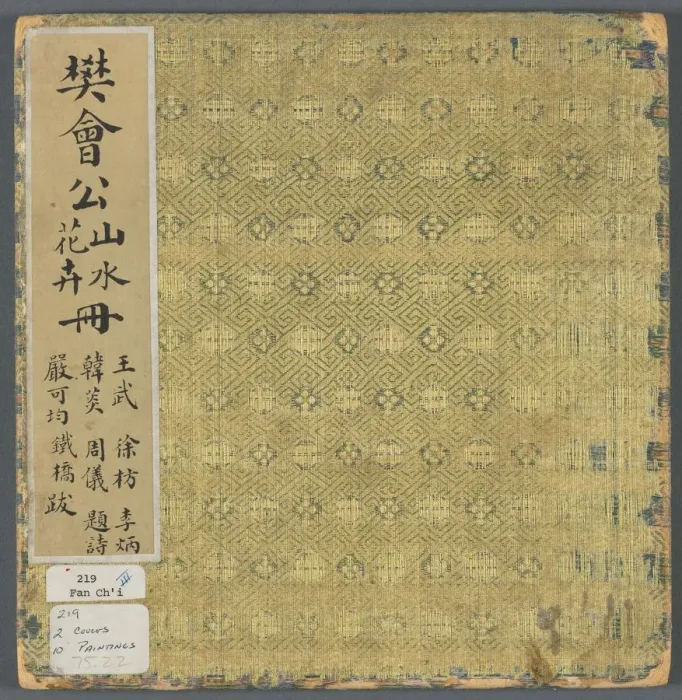 樊會公山水
花卉
冊
王武 徐枋 李炳
韓菼 周儀 題詩
嚴可均鐵橋跋
219 III
Fan Ch'i
219
2 COVERS
10 PAINTINGS
75.22